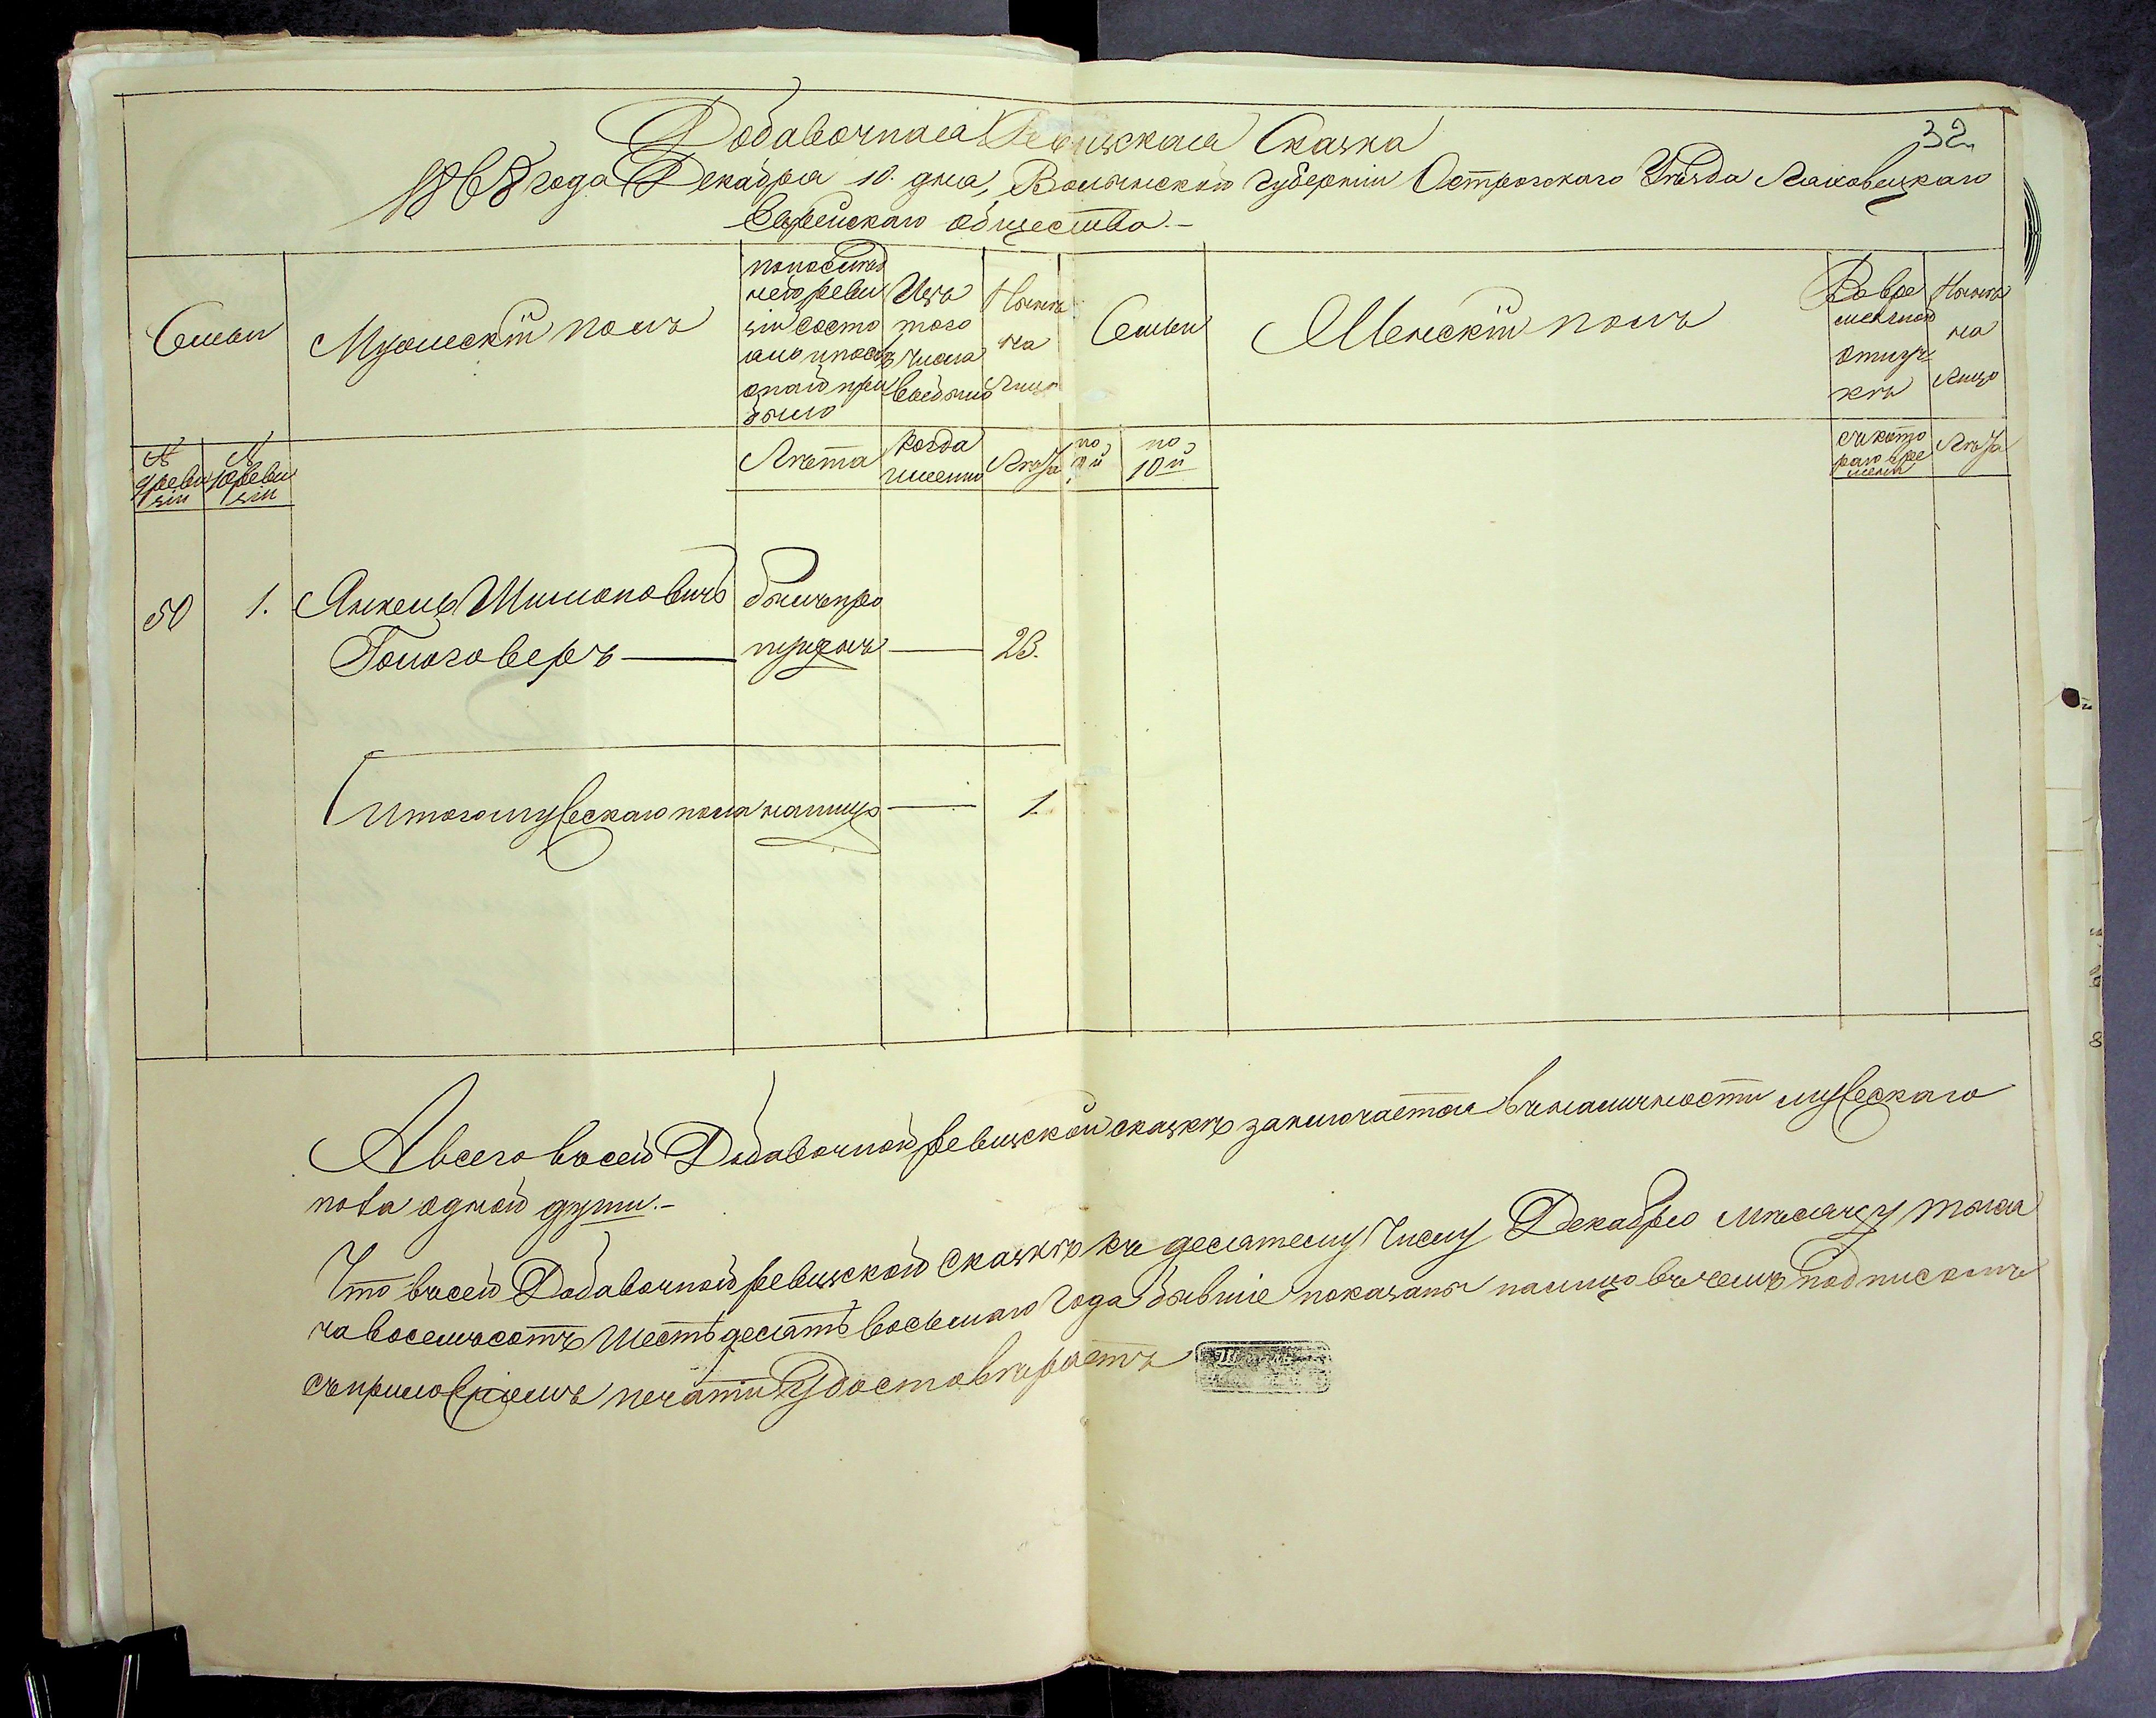 32
Добавочная Ревизская Сказка
1868 года Декабря 10. дня, Волынской Губерніи Острогскаго Уѣзда Ляховецкаго
Еврейскаго общества.-
Семьи
Мужескій полъ
по послѣд
ней реви
зіи состо
яло и послѣ
оной при
было
Изъ
того
числа
выбыло
Нынѣ
на
лицо
Семьи
Женскій полъ
Во вре
менной
отлуч
кѣ
Нынѣ
на
лицо
№
9 реви
зіи
№
10 реви
зіи
Лѣта
Когда
именно
Лѣта
по
9й
по
10й
съ кото
раго вре
мени
Лѣта
50 1. Янкель Шимоновичъ былъ про
Гологоверъ — пущенъ — 23.
Итого мужескаго пола на лицо — 1
А всего въ сей Добавочной ревизской сказкѣ заключается въ наличности мужескаго
пола одной души.-
Что въ сей Добавочной ревизской Сказкѣ къ десятому Числу Декабрю мѣсяцу тыся
ча восемьсотъ Шестьдесятъ восьмаго Года бывшіе показаны на лицо въ чемъ подпискомъ
съ приложеніемъ печати Удостовѣряетъ